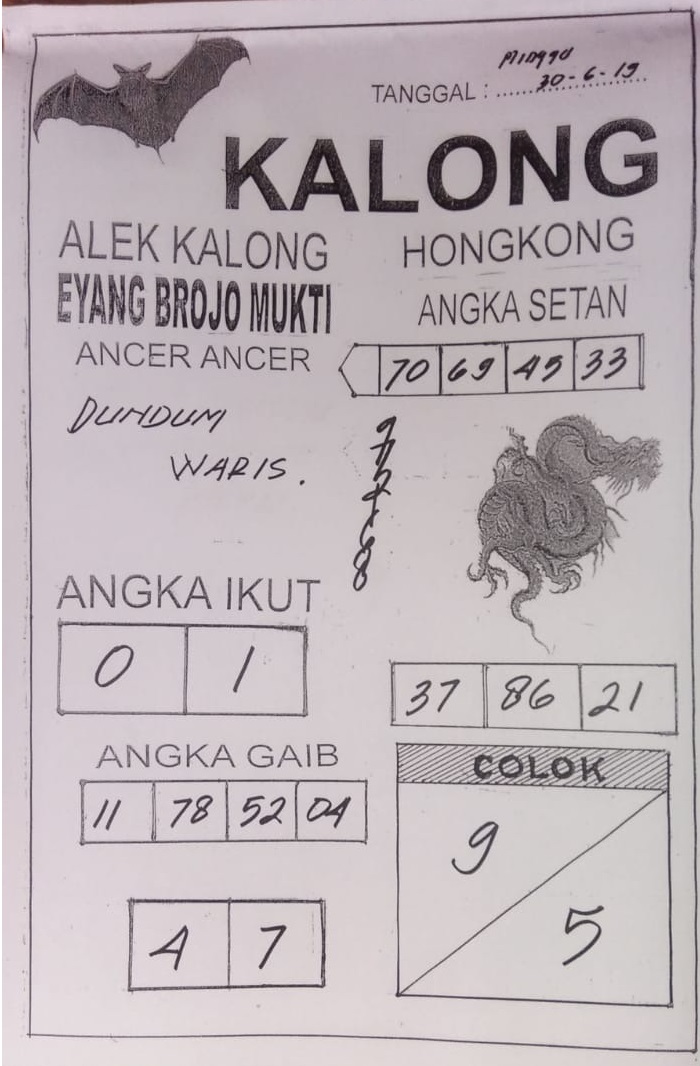 Minggu
TANGGAL : 30-6-19
KALONG
ALEK KALONG
EYANG BROJO MUKTI
ANCER ANCER
DUMDUM
WARIS.
HONGKONG
ANGKA SETAN
70 69 45 33
ANGKA IKUT
0 1
37 86 21
ANGKA GAIB
11 78 52 04
4 7
COLOK
9
5